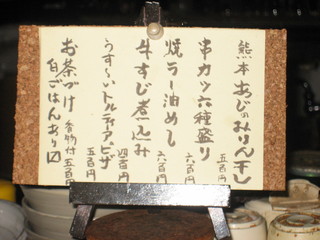 熊本あじのみりん干し 五百円
串カツ六種盛り 六百円
焼ラー油めし 六百円
牛すじ煮込み 四百円
うす〜いトルティアピザ 五百円
お茶づけ 香物付 五百円
白ごはんあり〼